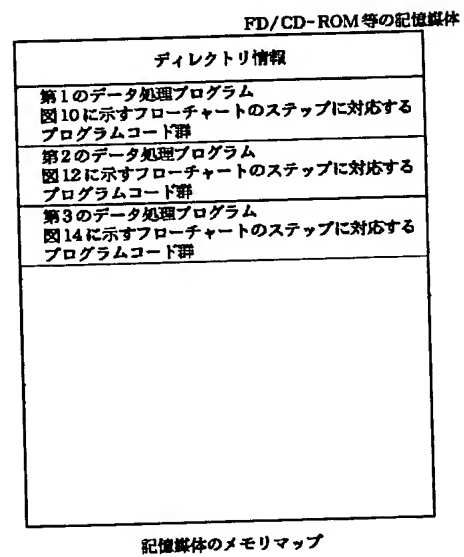 FD/CD-ROM等の記憶媒体
ディレクトリ情報
第1のデータ処理プログラム
図10に示すフローチャートのステップに対応する
プログラムコード群
第2のデータ処理プログラム
図12に示すフローチャートのステップに対応する
プログラムコード群
第3のデータ処理プログラム
図14に示すフローチャートのステップに対応する
プログラムコード群
記憶媒体のメモリマップ